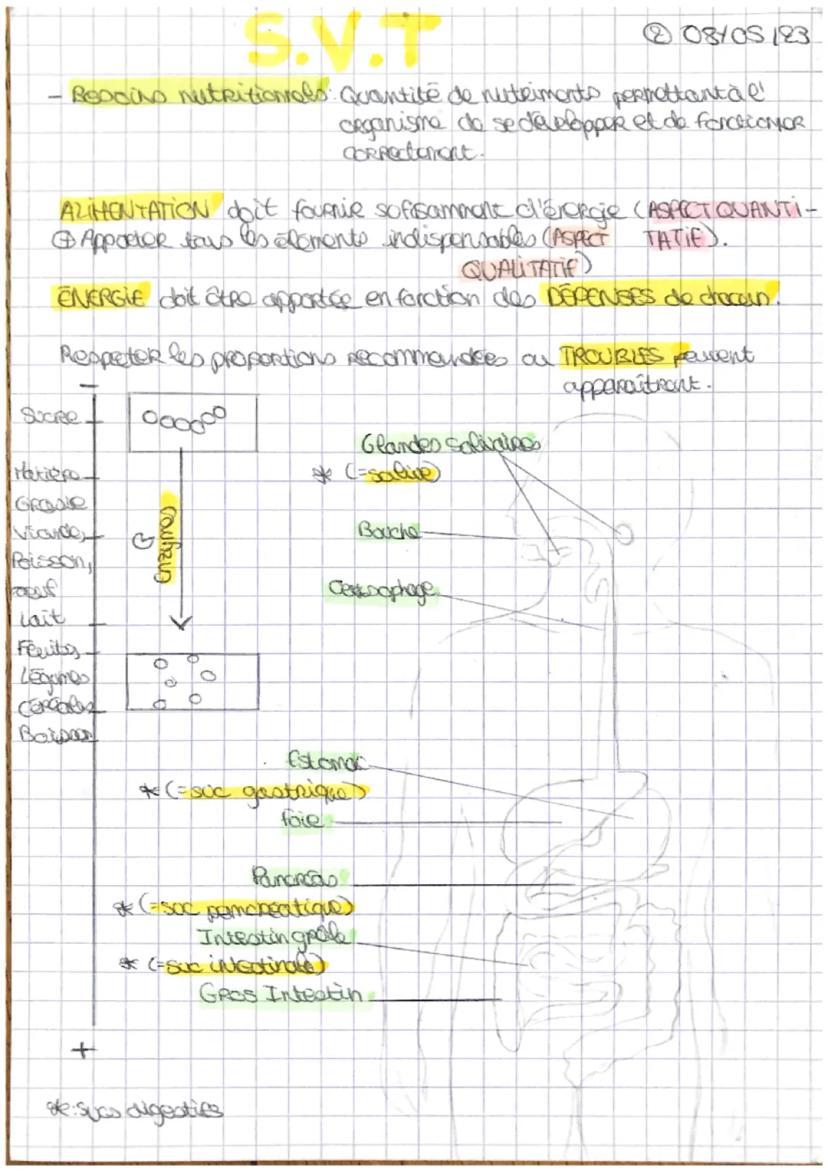 S.V.T
② 08/05/23
- Besoins nutritionnels: Quantité de nutriments permettant à l'
organisme de se développer et de fonctionner
correctement.
ALIMENTATION doit fournir soffisamment d'énergie (ASPECT QUANTI-
⊕ Apporter tous les éléments indispensables (ASPECT TATIF).
QUALITATIF)
ÉNERGIE doit être apportée en fonction des DÉPENSES de chacun.
Respecter les proportions recommandées ou TROUBLES peuvent
apparaîtront.
-
Sucre
Matière
Grasse
Viande,
Poisson,
oeuf
Lait
Fruits
Légumes
Céréales
Boisson
+
Glandes salivaires
* (=salive)
Bouche
Oesophage
Estomac
* (=suc gastrique)
foie
Pancréas
* (=suc pancréatique)
Intestin grêle
* (=suc intestinale)
Gros Intestin
*: sucs digestifs